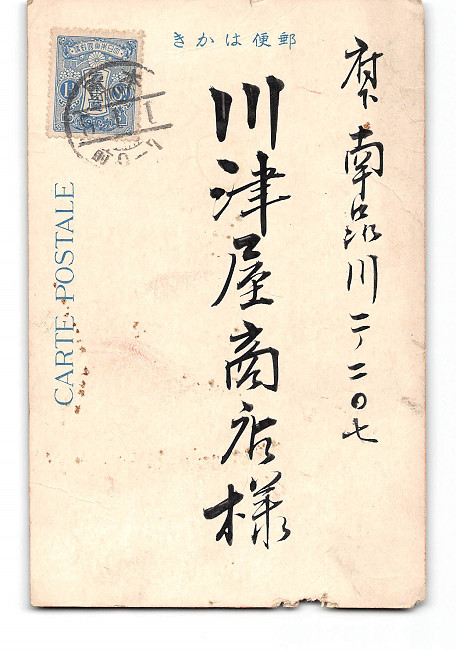 郵便はかき
府下南品川二ノ二〇七
川津屋商店様
CARTE POSTALE